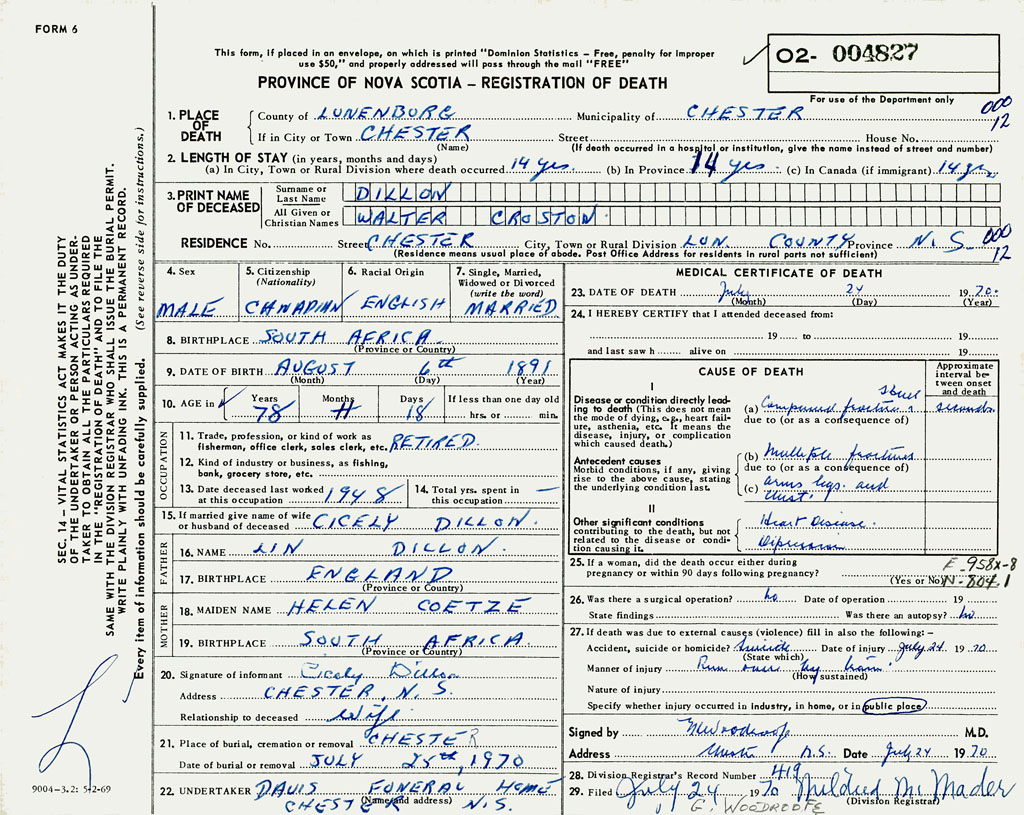 FORM 6
This form, if placed in an envelope, on which is printed "Dominion Statistics – Free, penalty for improper
use $50," and properly addressed will pass through the mail "FREE"
O2- 004827
PROVINCE OF NOVA SCOTIA – REGISTRATION OF DEATH
For use of the Department only
000
12
1. PLACE OF DEATH
County of LUNENBURG Municipality of CHESTER
If in City or Town CHESTER Street House No.
(Name) (If death occurred in a hospital or institution, give the name instead of street and number)
2. LENGTH OF STAY (in years, months and days)
(a) In City, Town or Rural Division where death occurred 14 yrs. (b) In Province 14 yrs. (c) In Canada (if immigrant) 14 yrs
3. PRINT NAME OF DECEASED
Surname or Last Name DILLON
All Given or Christian Names WALTER CROSTON
RESIDENCE No. Street CHESTER City, Town or Rural Division LUN. COUNTY Province N.S. 000
(Residence means usual place of abode. Post Office Address for residents in rural parts not sufficient) 12
4. Sex
MALE
5. Citizenship (Nationality)
CANADIAN
6. Racial Origin
ENGLISH
7. Single, Married, Widowed or Divorced (write the word)
MARRIED
8. BIRTHPLACE SOUTH AFRICA
(Province or Country)
9. DATE OF BIRTH AUGUST 6th 1891
(Month) (Day) (Year)
10. AGE in Years Months Days If less than one day old
78 11 18 hrs. or min.
OCCUPATION
11. Trade, profession, or kind of work as
fisherman, office clerk, sales clerk, etc. RETIRED.
12. Kind of industry or business, as fishing,
bank, grocery store, etc.
13. Date deceased last worked at this occupation 1948
14. Total yrs. spent in this occupation —
15. If married give name of wife
or husband of deceased CICELY DILLON.
FATHER
16. NAME LIN DILLON.
17. BIRTHPLACE ENGLAND
(Province or Country)
MOTHER
18. MAIDEN NAME HELEN COETZE
19. BIRTHPLACE SOUTH AFRICA
(Province or Country)
20. Signature of informant Cicely Dillon
Address CHESTER, N.S.
Relationship to deceased Wife
21. Place of burial, cremation or removal CHESTER
Date of burial or removal JULY 25th, 1970
22. UNDERTAKER DAVIS FUNERAL HOME
(Name and address)
CHESTER N.S.
MEDICAL CERTIFICATE OF DEATH
23. DATE OF DEATH July 24 1970.
(Month) (Day) (Year)
24. I HEREBY CERTIFY that I attended deceased from:
19 to 19
and last saw h alive on 19
CAUSE OF DEATH
Approximate interval between onset and death
I
Disease or condition directly leading to death (This does not mean the mode of dying, e.g., heart failure, asthenia, etc. It means the disease, injury, or complication which caused death.)
(a) Compound fracture skull seconds.
due to (or as a consequence of)
Antecedent causes
Morbid conditions, if any, giving rise to the above cause, stating the underlying condition last.
(b) Multiple fractures
due to (or as a consequence of)
(c) arms legs. and
II
Other significant conditions contributing to the death, but not related to the disease or condition causing it.
Heart Disease.
Depression
25. If a woman, did the death occur either during
pregnancy or within 90 days following pregnancy?
(Yes or No)
E-958X-8
N-804.1
26. Was there a surgical operation? no Date of operation 19
State findings Was there an autopsy? no
27. If death was due to external causes (violence) fill in also the following: –
Accident, suicide or homicide? Suicide Date of injury July 24. 1970
(State which)
Manner of injury Run over by train.
(How sustained)
Nature of injury
Specify whether injury occurred in industry, in home, or in public place
Signed by M.D.
Address Chester N.S. Date July 24 1970
28. Division Registrar's Record Number 419
29. Filed July 24 1970 Mildred M. Mader
(Division Registrar)
G. WOODROOFE
SEC. 14 – VITAL STATISTICS ACT MAKES IT THE DUTY
OF THE UNDERTAKER OR PERSON ACTING AS UNDER-
TAKER TO OBTAIN ALL THE PARTICULARS REQUIRED
IN THE "REGISTRATION OF DEATH" AND TO FILE THE
SAME WITH THE DIVISION REGISTRAR WHO SHALL ISSUE THE BURIAL PERMIT.
WRITE PLAINLY WITH UNFADING INK. THIS IS A PERMANENT RECORD.
Every item of information should be carefully supplied. (See reverse side for instructions.)
9004-3.2: 5-2-69